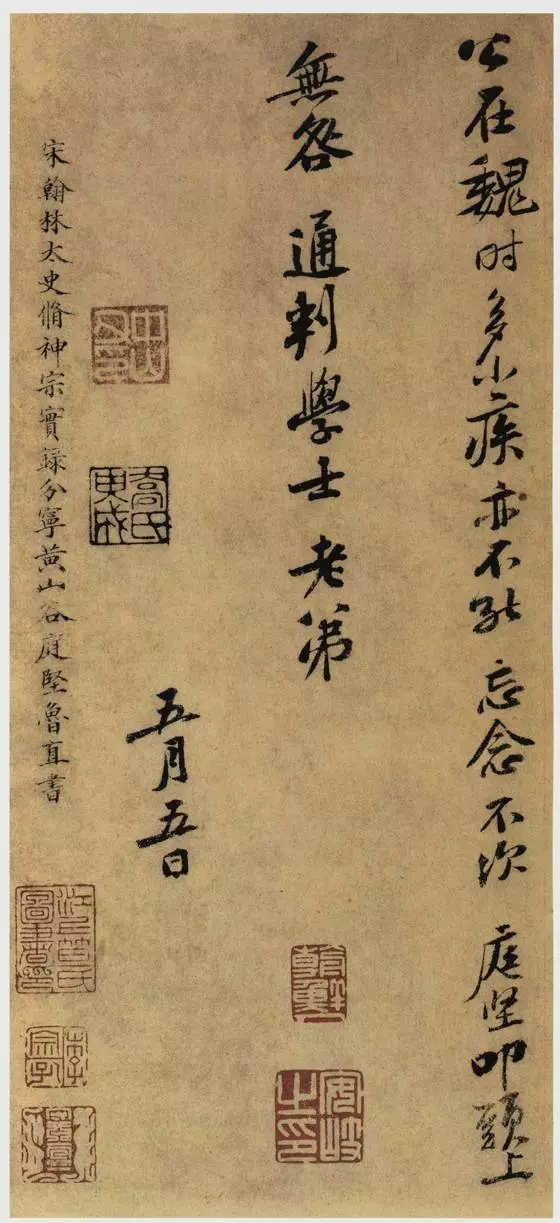 公在魏时多小疾亦不能忘念不次庭坚叩頭上
無咎通判學士老弟
五月五日
宋翰林太史脩神宗實録分寧黄山谷庭堅魯直書
喬氏